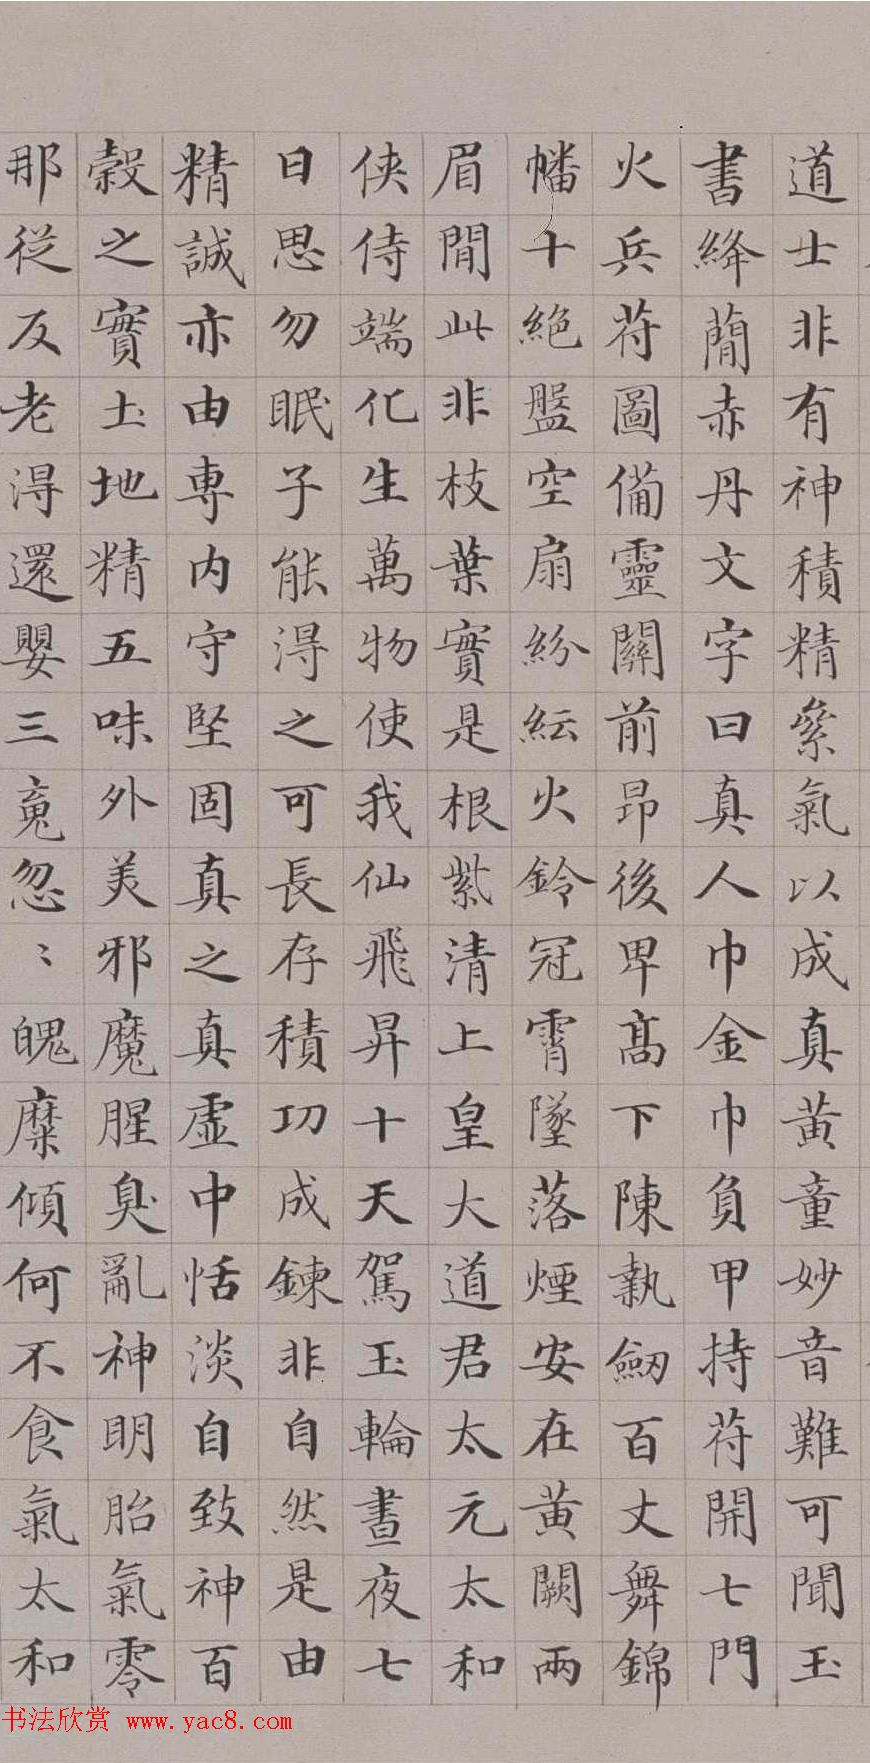 道士非有神積精絫氣以成真黃童妙音難可聞玉
書絳蕳赤丹文字曰真人巾金巾負甲持苻開七門
火兵苻圖備靈關前昂後卑高下陳執劒百丈舞錦
幡十絕盤空扇紛紜火鈴冠霄墜落煙安在黃闕兩
眉間此非枝葉實是根紫清上皇大道君太元太和
俠侍端化生萬物使我仙飛昇十天駕玉輪晝夜七
日思勿眠子能淂之可長存積功成鍊非自然是由
精誠亦由專內守堅固真之真虛中恬淡自致神百
穀之實土地精五味外羙邪魔腥臭亂神明胎氣零
那從反老淂還嬰三䰟忽〻魄糜傾何不食氣太和
书法欣赏 www.yac8.com